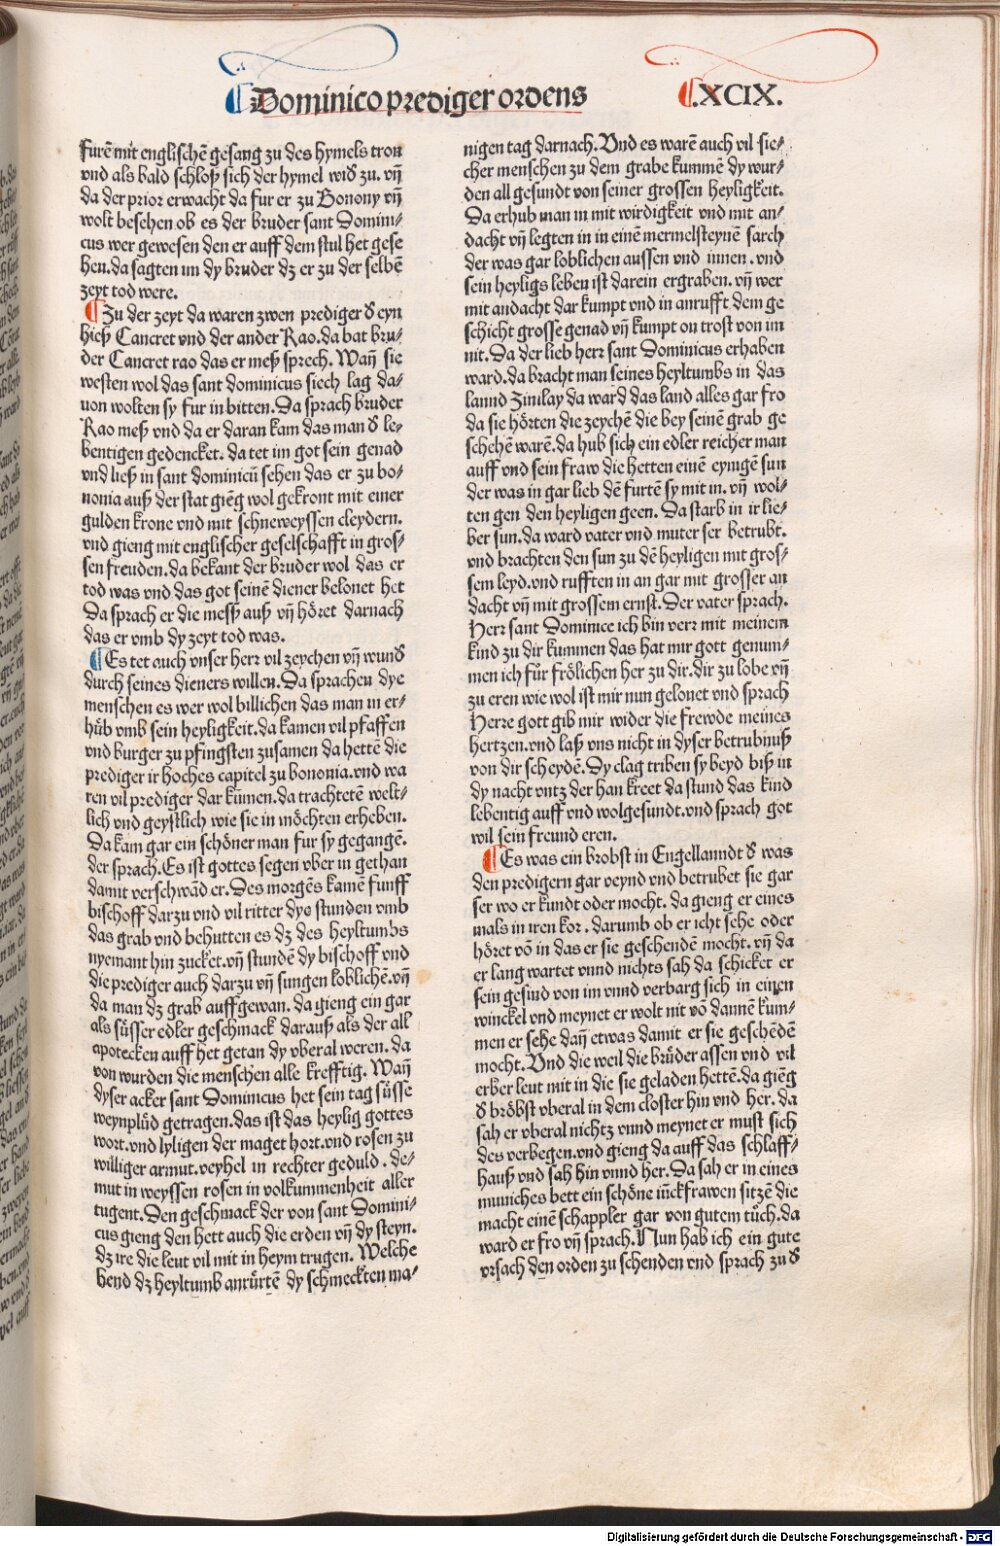 Dominico prediger ordens
.XCIX.
furẽ mit englischẽ gesang zu des hymels tron
vnd als bald schloß sich der hymel wid' zu. vñ
da der prior erwacht da fur er zu Bonony vñ
wolt besehen ob es der bruder sant Domini-
cus wer gewesen den er auff dem stul het gese
hen. da sagten im dy bruder dz er zu der selbẽ
zeyt tod were.
Zu der zeyt da waren zwen prediger d' eyn
hieß Cancret vnd der ander Rao. da bat bru-
der Cancret rao das er meß sprech. Wañ sie
westen wol das sant dominicus siech lag da-
uon wolten sy fur in bitten. Da sprach bruder
Rao meß vnd da er daran kam das man d' le-
bentigen gedencket. da tet im got sein genad
vnd ließ in sant dominicũ sehen das er zu bo-
nonia auß der stat giẽg wol gekront mit einer
gulden krone vnd mit schneweyssen cleydern.
vnd gieng mit englischer geselschafft in gros-
sen freuden. da bekant der bruder wol das er
tod was vnd das got seinẽ diener belonet het
Da sprach er die meß auß vñ höret darnach
das er vmb dy zeyt tod was.
Es tet auch vnser herr vil zeychen vñ wund'
durch seines dieners willen. Da sprachen dye
menschen es wer wol billichen das man in er-
hüb vmb sein heyligkeit. da kamen vil pfaffen
vnd burger zu pfingsten zusamen da hettẽ die
prediger ir hoches capitel zu bononia. vnd wa
ren vil prediger dar kũmen. da trachtetẽ welt-
lich vnd geystlich wie sie in möchten erheben.
Da kam gar ein schöner man fur sy gegangẽ.
der sprach. Es ist gottes segen vber in gethan
damit verschwãd er. Des morgẽs kamẽ funff
bischoff darzu vnd vil ritter dye stunden vmb
das grab vnd behutten es dz des heyltumbs
nyemant hin zucket. vñ stundẽ dy bischoff vnd
die prediger auch darzu vñ sungen löblichẽ. vñ
da man dz grab auffgewan. da gieng ein gar
als süsser edler geschmack darauß als der all
apotecken auff het getan dy vberal weren. da
von wurden die menschen alle krefftig. Wañ
dyser acker sant Dominicus het sein tag süsse
weynplüd getragen. das ist das heylig gottes
wort. vnd lyligen der maget hort. vnd rosen zu
williger armut. veyhel in rechter geduld. de-
mut in weyssen rosen in volkummenheit aller
tugent. Den geschmack der von sant Domini-
cus gieng den hett auch die erden vñ dy steyn.
dz ire die leut vil mit in heym trugen. Welche
hend dz heyltumb anrürtẽ dy schmeckten ma-
nigen tag darnach. Vnd es warẽ auch vil sie-
cher menschen zu dem grabe kummẽ dy wur-
den all gesundt von seiner grossen heyligkeit.
Da erhub man in mit wirdigkeit vnd mit an-
dacht vñ legten in in einẽ mermelsteynẽ sarch
der was gar loblichen aussen vnd innen. vnd
sein heyligs leben ist darein ergraben. vñ wer
mit andacht dar kumpt vnd in anrufft dem ge
schicht grosse genad vñ kumpt on trost von im
nit. Da der lieb herr sant Dominicus erhaben
ward. da bracht man seines heyltumbs in das
lannd Zinilay da ward das land alles gar fro
da sie hörten die zeychẽ die bey seinẽ grab ge
schehẽ warẽ. da hub sich ein edler reicher man
auff vnd sein fraw die hetten einẽ eynigẽ sun
der was in gar lieb dẽ furtẽ sy mit in. vñ wol-
ten gen den heyligen geen. Da starb in ir lie-
ber sun. da ward vater vnd muter ser betrubt.
vnd brachten den sun zu dẽ heyligen mit gros-
sem leyd. vnd rufften in an gar mit grosser an
dacht vñ mit grossem ernst. Der vater sprach.
Herr sant Dominice ich bin verr mit meinem
kind zu dir kummen das hat mir gott genum-
men ich fůr frölichen her zu dir. dir zu lobe vñ
zu eren wie wol ist mir nun gelonet vnd sprach
Herre gott gib mir wider die frewde meines
hertzen. vnd laß vns nicht in dyser betrubnuß
von dir scheydẽ. Dy clag triben sy beyd biß in
dy nacht vntz der han kreet da stund das kind
lebentig auff vnd wolgesundt. vnd sprach got
wil sein freund eren.
Es was ein brobst in Engellanndt d' was
den predigern gar veynd vnd betrubet sie gar
ser wo er kundt oder mocht. da gieng er eines
mals in iren kor. darumb ob er icht sehe oder
höret võ in das er sie geschendẽ mocht. vñ da
er lang wartet vnnd nichts sah da schicket er
sein gesind von im vnnd verbarg sich in einen
winckel vnd meynet er wolt nit võ dannẽ kum-
men er sehe dañ etwas damit er sie geschẽdẽ
mocht. Vnd die weil die brüder assen vnd vil
erber leut mit in die sie geladen hettẽ. da giẽg
d' bröbst vberal in dem closter hin vnd her. da
sah er vberal nichtz vnnd meynet er must sich
des verbegen. vnd gieng da auff das schlaff-
hauß vnd sah hin vnnd her. Da sah er in eines
muniches bett ein schöne iũckfrawen sitzẽ die
macht einẽ schappler gar von gutem tůch. da
ward er fro vñ sprach. Nun hab ich ein gute
vrsach den orden zu schenden vnd sprach zu d'
Digitalisierung gefördert durch die Deutsche Forschungsgemeinschaft - DFG